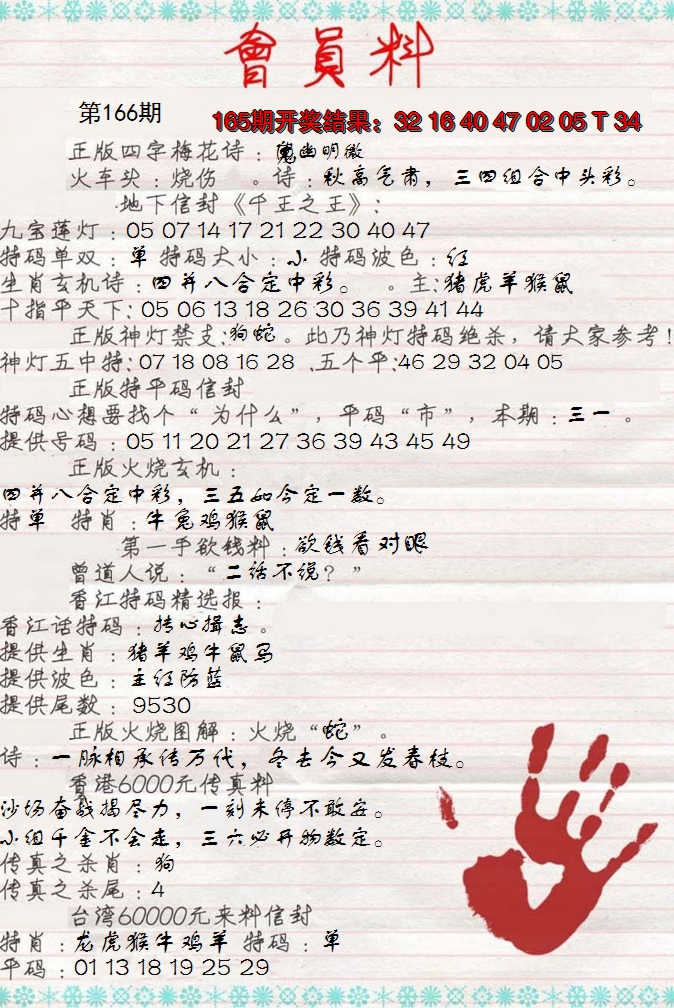 會員料
第166期
165期开奖结果：32 16 40 47 02 05 T 34
正版四字梅花诗：寃幽明微
火车头：烧伤 。诗：秋高气肃，三四组合中头彩。
.地下信封《千王之王》：
九宝莲灯：05 07 14 17 21 22 30 40 47
特码单双：单 特码大小：小 特码波色：红
生肖玄机诗：四并八合定中彩。 。主:猪虎羊猴鼠
十指平天下: 05 06 13 18 26 30 36 39 41 44
正版神灯禁支:狗蛇。此乃神灯特码绝杀，请大家参考!
神灯五中特: 07 18 08 16 28 .五个平:46 29 32 04 05
正版特平码信封
特码心想要找个“为什么”，平码“市”，本期：三一 。
提供号码：05 11 20 21 27 36 39 43 45 49
正版火烧玄机：
四并八合定中彩，三五如今定一数。
特单 特肖：牛兔鸡猴鼠
第一手欲钱料：欲钱看对眼
曾道人说：“二话不说？”
香江特码精选报：
香江话特码：抟心揖志 。
提供生肖：猪羊鸡牛鼠马
提供波色：主红防蓝
提供尾数：9530
正版火烧图解：火烧“蛇”。
诗：一脉相承传万代，冬去今又发春枝。
香港6000元传真料
沙场奋战揭尽力，一刻未停不敢安。
小组千金不会走，三六必开物数定。
传真之杀肖：狗
传真之杀尾：4
台湾60000元来料信封
特肖：龙虎猴牛鸡羊 特码：单
平码：01 13 18 19 25 29